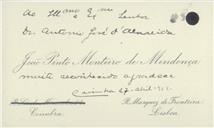 Ao Illmo e Exmo Senhor
Dr. Antonio José d'Almeida
João Pinto Monteiro de Mendonça
muito reconhecido agradece
Coimbra 27 Abril 912
Coimbra
R. Marquez de Fronteira
Lisboa